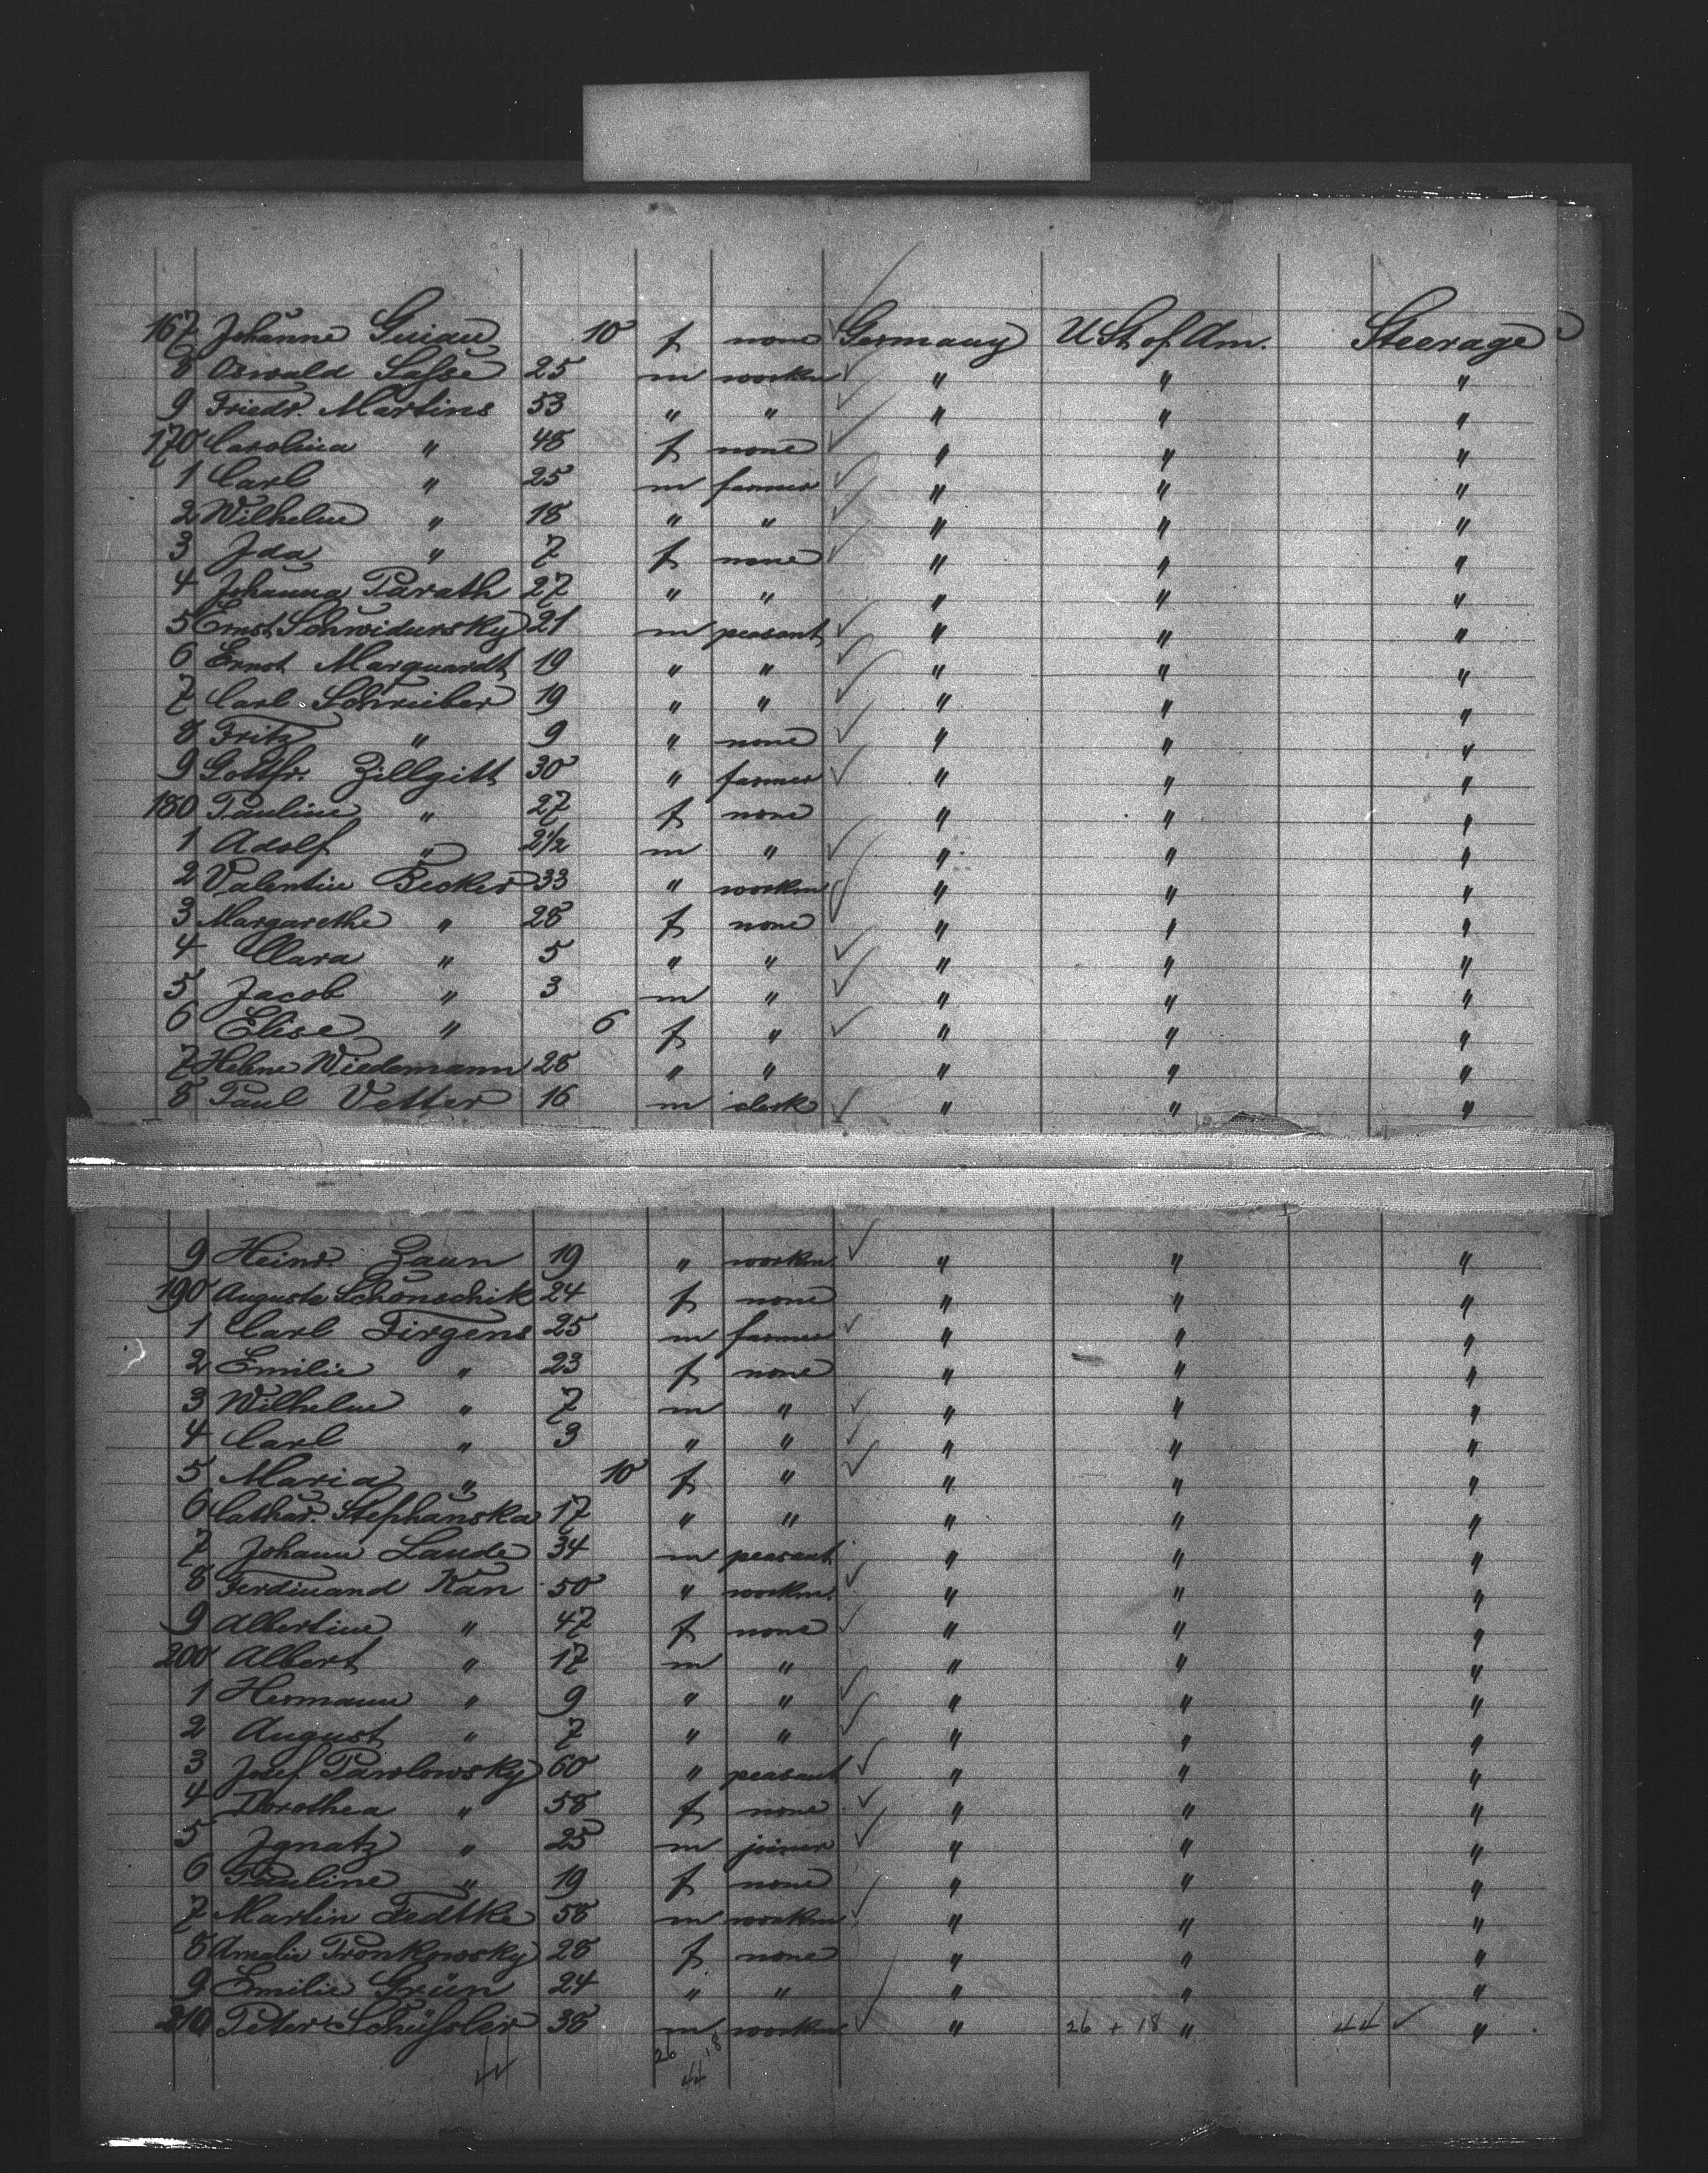 167 Johanne Guiau 10 f none Germany U St of Am. Steerage
8 Oswald Saſse 25 m workm " " "
9 Friedr. Martins 53 " " " " "
170 Carolina " 48 f none " " "
1 Carl " 25 m farmer " " "
2 Wilhelm " 18 " " " " "
3 Ida " 7 f none " " "
4 Johanna Parath 27 " " " " "
5 Ernst Schwidursky 21 m peasant " " "
6 Ernst Marquardt 19 " " " " "
7 Carl Schreiber 19 " " " " "
8 Fritz " 9 " none " " "
9 Gottfr. Zillgitt 30 " farmer " " "
180 Pauline " 27 f none " " "
1 Adolf " 2 1/2 m " " " "
2 Valentin Becker 33 " workm " " "
3 Margarethe " 28 f none " " "
4 Clara " 5 " " " " "
5 Jacob " 3 m " " " "
6 Elise " 6 f " " " "
7 Helene Wiedemann 28 " " " " "
8 Paul Vetter 16 m clerk " " "
9 Heinr. Zaun 19 " workm " " "
190 Auguste Schonschik 24 f none " " "
1 Carl Firgens 25 m farmer " " "
2 Emilie " 23 f none " " "
3 Wilhelm " 7 m " " " "
4 Carl " 3 " " " " "
5 Maria " 10 f " " " "
6 Cathar. Stephanska 17 " " " " "
7 Johann Laude 34 m peasant " " "
8 Ferdinand Kan 50 " workm. " " "
9 Albertine " 47 f none " " "
200 Albert " 17 m " " " "
1 Hermann " 9 " " " " "
2 August " 7 " " " " "
3 Josef Pawlowsky 60 " peasant " " "
4 Dorothea " 58 f none " " "
5 Ignatz " 25 m joiner " " "
6 Pauline " 19 f none " " "
7 Martin Fedtke 58 m workm " " "
8 Amalie Pronkowsky 28 f none " " "
9 Emilie Grün 24 " " " " "
210 Peter Schüſsler 38 m workm " 26 + 18 " 44 "
44 26 18
44